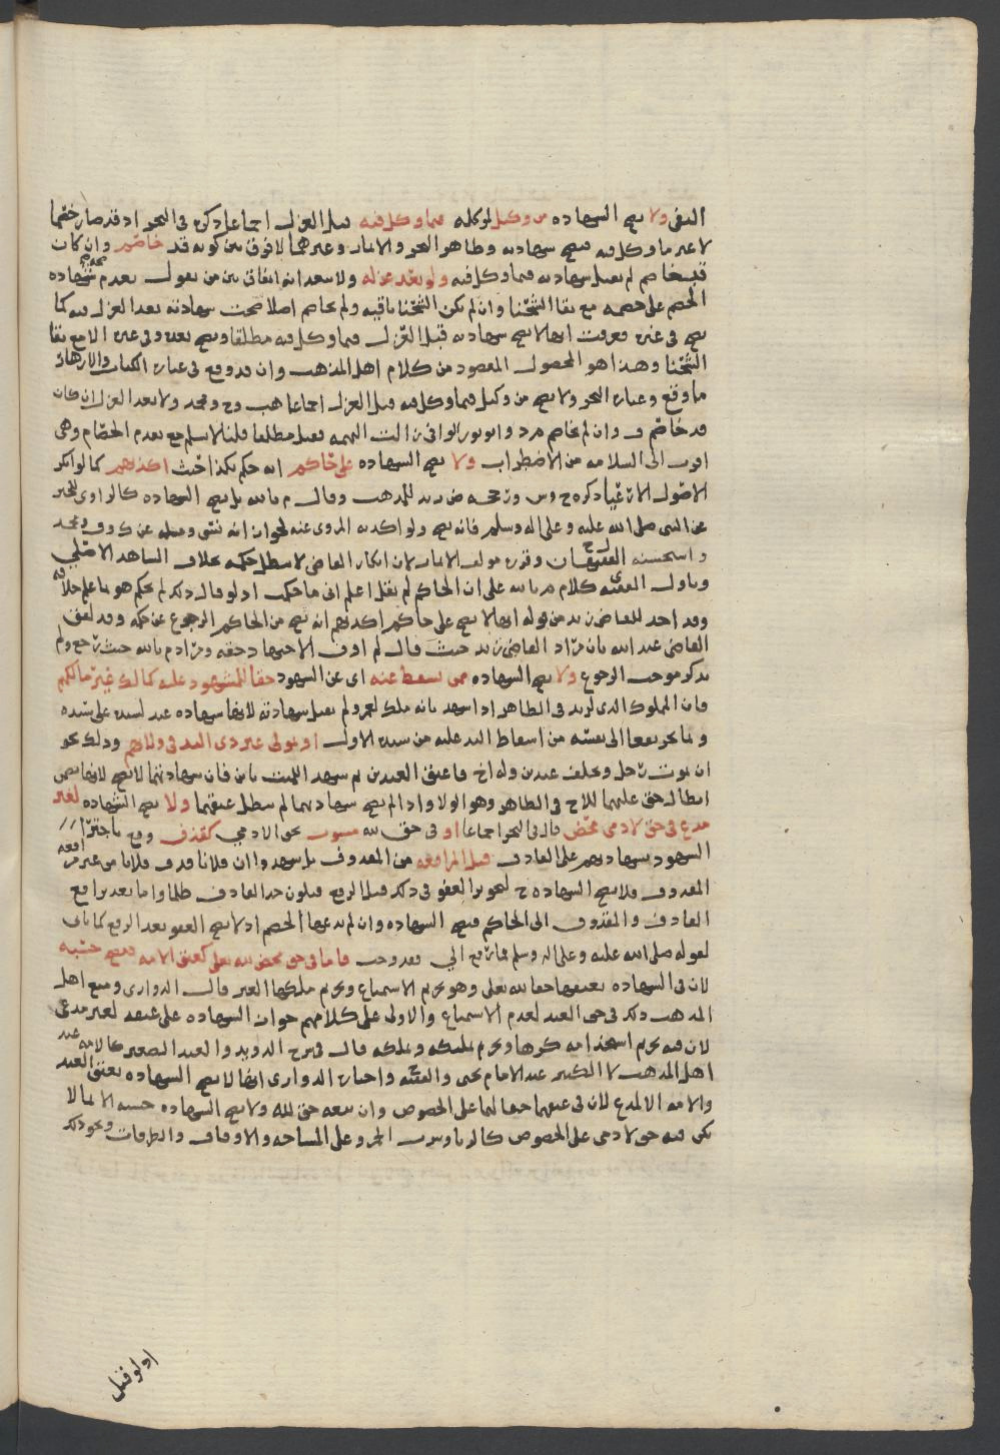 النفي ولا تصح الشهادة من وكيل لموكله فيما وكل فيه قبل العزل اجماعا ذكره في البحر اذ قد صار خصما
لا غير ما وكل فيه فتصح شهادته وظاهر البحر والاثمار وغيرهما لا فرق بين كونه قد خاصم وان كان
قد خاصم لم تقبل شهادته فيما وكل فيه ولو بعد عزله ولا يبعد انه اتفاق بين من يقول بعدم صحة شهادة
الخصم على خصمه مع بقا الشحنا وان لم تكن الشحنا باقيه ولم يخاصم اصلا صحت شهادته بعد العزل فيه كما
تصح في غيره فعرفت انها لا تصح شهادته قبل العزل فيما وكل فيه مطلقا وتصح بعده وفي غيره الا مع بقا
الشحنا وهذا هو المحصول المقصود من كلام اهل المذهب وان قد وقع في عبارة الكتاب والازهار
ما وقع وعبارة البحر ولا تصح من وكيل فيما وكل فيه قبل العزل اجماعا هب وح ومحمد ولا بعد العزل ان كان
قد خاصم ف وان لم يخاصم مرد وابو ثور الوافي زالت التهمه فقبل مطلقا قلنا لا نسلم مع تقدم الخصام وهي
اقرب الى السلامه من الاضطراب ولا تصح الشهادة على حاكم انه حكم بكذا حيث اكذبهم كما لو انكر
الاصول الارعيا ذكره ح وش ورجحه ض زيد للمذهب وقال م بالله بل تصح الشهادة كالراوي للخبر
عن النبي صلى الله عليه وعلى اله وسلم فانه يصح ولو اكذبه المروي عنه لجواز انه نسي ومثله عن ك وف ومحمد
واستحسنه الفقيهان وقرره مولف الاثمار لان انكار القاضي لا يبطل حكمه بخلاف الشاهد الاصلي
وتاول الفقيه كلام م بالله على ان الحاكم لم يقل اعلم اني ما حكمت اذ لو قال ذلك لم يحكم هو بما علم خلافه
وقد اخذ للقاضي زيد من قوله انها لا تصح على حاكم اكذبهم انه يصح من الحاكم الرجوع عن حكمه وقد لفق
القاضي عبد الله بان مراد القاضي زيد حيث قال لم اوف الاجتهاد حقه ومراد م بالله حيث رجع ولم
يذكر موجب الرجوع ولا تصح الشهادة ممن يسقط عنه اي عن الشهود حقا للمشهود عليه كمالك غير مالكهم
فان المملوك الذي لزيد في الظاهر اذا شهد بانه ملك لعمرو لم تقبل شهادته لانها شهادة عبد لسيده على سيده
وبما يجر نفعا الى نفسه من اسقاط اليد عليه من سيده الاول او يتولى غير ذي اليد في ولايهم وذلك نحو
ان يموت رجل ويخلف عبدين وله اخ فاعتق العبدين ثم شهدا للميت بابن فان شهادتهما لا تصح لانها تضمن
ابطال حق عليهما للاخ في الظاهر وهو الولا واذا لم تصح شهادتهما لم يبطل عتقهما ولا تصح الشهادة لغير
مدع في حق لادمي محض قال في البحر اجماعا او في حق لله مشوب بحق الادمي كقذف وقع باجتزا
الشهود بشهادتهم على القاذف قبل المرافعه من المقذوف بل شهدوا ان فلانا قذف فلانا من غير مرافعه
المقذوف فلا تصح الشهادة ح لتجويز العفو في ذلك قبل الرفع فيكون حد القاذف ظلما واما بعد ترافع
القاذف والمقذوف الى الحاكم فتصح الشهادة وان لم يدعها الخصم اذ لا يصح العفو بعد الرفع كما ياتي
لقوله صلى الله عليه وعلى اله وسلم فما رفع الي فقد وجب فاما في حق محض لله تعالى كعتق الامه فتصح حسبه
لان في الشهادة بعتقها حقا لله تعالى وهو تحريم الاستمتاع وتحريم ملكها الغير قال الدواري ومنع اهل
المذهب ذلك في حق العبد لعدم الاستمتاع والاولى على كلامهم جواز الشهادة على عتقه لغير مدعى
لان فيه تحريم استخدامه كرها وتحريم تمليكه وتملكه قال في شرح الدويد والعبد الصغير كالامه عند
اهل المذهب لا الكبير عند الامام يحيى والفقيه واختار الدواري انها لا تصح الشهادة بعتق العبد
والامه الا لمدع لان في عتقهما حقا لهما على الخصوص وان تبعه حق لله ولا تصح الشهادة حسبه الا لما لا
يكن فيه حق لادمي على الخصوص كالزنا وشرب الخمر وعلى المساجد والاوقاف والطرقات ونحو ذلك
اذ لو قيل